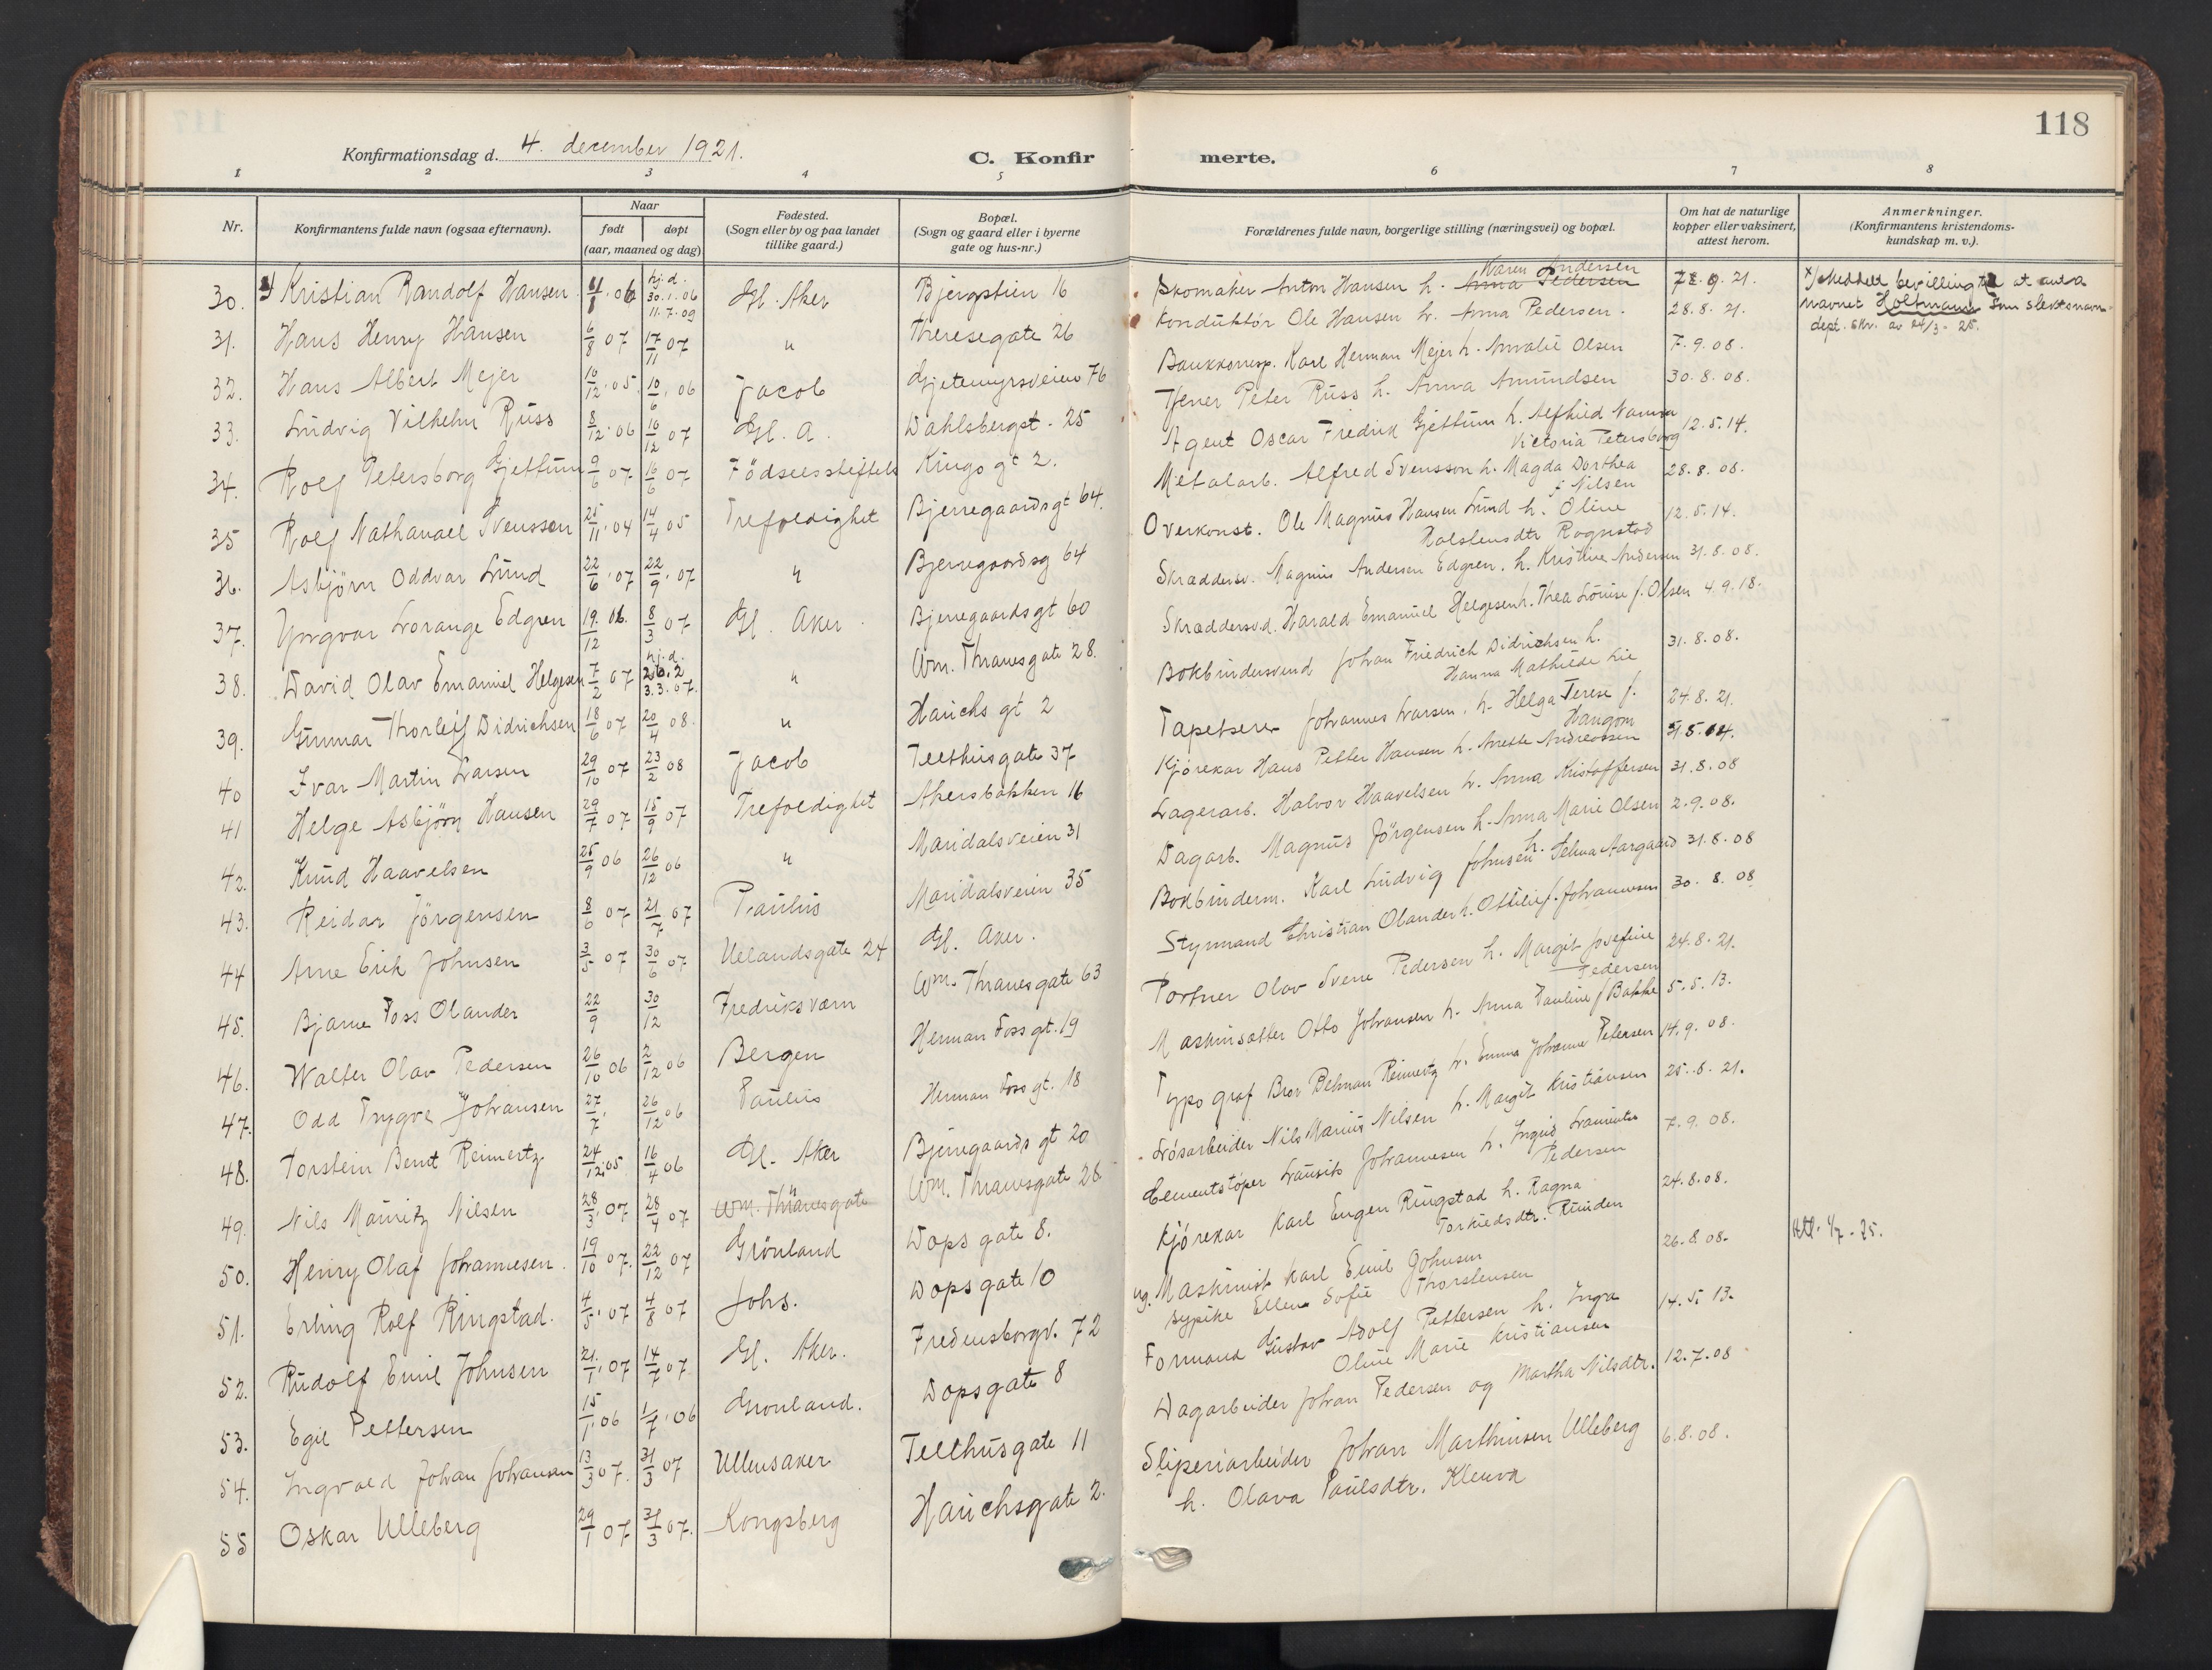 118
Konfirmationsdag d. 4. december 1921.
C. Konfir merte.
1 2 3 4 5 6 7 8
Nr.
Konfirmantens fulde navn (ogsaa efternavn).
Naar
født døpt
(aar, maaned og dag)
Fødested.
(Sogn eller by og paa landet
tillike gaard.)
Bopæl.
(Sogn og gaard eller i byerne
gate og hus-nr.)
Forældrenes fulde navn, borgerlige stilling (næringsvei) og bopæl.
Om hat de naturlige
kopper eller vaksinert,
attest herom.
Anmerkninger.
(Konfirmantens kristendoms-
kundskap m. v.).
30. Kristian Randolf Hansen 06 hj. d. 30.1.06 11.7.09 Gl. Aker Bjergstien 16 Skomaker Anton Hansen h. Anna Pedersen Karen Andersen 9. 21. x/ Meddelt bevilling til at anta
navnet Holtmann som slektsnavn
dept. skr. av 24/3-25.
31. Hans Henry Hansen 6/8 07 17/11 07 " Theresegate 26 Konduktør Ole Hansen h. Anna Pedersen. 28.8.21.
32. Hans Albert Mejer 10/12.05. 10/6.06 Jacob Gjetemyrsveien 76 Bankkorresp. Karl Herman Mejer h. Amalie Olsen 7.9.08.
33. Ludvig Vilhelm Russ 8/12.06 16/12 07 Gl. A. Dahlsbergst. 25 Tjener Peter Russ h. Anna Amundsen 30.8.08.
34. Rolf Petersborg Gjettum 9/6 07 16/6 07 Födselsstiftels Kingos gt 2. Agent Oscar Fredrik Gjettum h. Alfhild Nanna
Victoria Petersborg 12.5.14.
35 Rolf Nathanael Svensson 25/11.04 14/4 05 Trefoldighet Bjerregaardsgt 64. Metalarb. Alfred Svensson h. Magda Dorthea
f. Nilsen 28.8.08.
36. Asbjörn Oddvar Lund 22/6.07 22/9.07 " Bjerregaardsg 64 Overkonst. Ole Magnus Hansen Lund h. Oline
Rognstad 12.5.14.
37. Yngvar Lorange Edgren 19/12.06. 8/3 07 Gl. Aker Bjerregaardsgt 60 Skræddersv. Magnus Andersen Edgren. h. Kristine Andersen 31.8.08.
38. David Olav Emanuel Helgesen 7/2 07 hj. d. 26.2 3.3.07. " Wm. Thranesgate 28. Skræddersv.d. Harald Emanuel Helgesen h. Thea Louise f. Olsen 4.9.18.
39. Gunnar Thorleif Didrichsen 18/6 07 20/4 08. " Hauchs gt 2 Bokbindersvend Johan Friedrich Didrichsen h.
Hanna Mathilde Lie 31.8.08.
40 Ivar Martin Larsen 29/10 07 23/2 08 Jacob Teelthusgate 37 Tapetserer Johannes Larsen. h. Helga Terese f.
Haugom 24.8.21.
41 Helge Asbjörn Hansen 29/7 07 15/9 07 Trefoldighet Akersbakken 16 Kjörekar Hans Petter Hansen h. Anette Andreassen 31.5.14.
42. Knud Haavelsen 25/9 06 26/12 06 " Maridalsveien 31 Lagerarb. Halvor Haavelsen h. Anna Kristoffersen 31.8.08
43. Reidar Jörgensen 8/6 07 21/7 07 Paulus Maridalsveien 35 Dagarb. Magnus Jörgensen h. Anna Marie Olsen 2.9.08.
44 Arne Erik Johnsen 3/5 07 30/6 07 Uelandsgate 24 Gl. Aker. Bokbinderm. Karl Ludvig Johnsen h. Selma Aargaard 31.8.08
45. Bjarne Foss Olander 22/9 30/12 Fredriksværn Wm. Thranesgate 63 Styrmand Christian Olander h. Ottilie f. Johannesen 30.8.08
46. Walter Olav Pedersen 26/10 06 2/12 06 Bergen Herman Foss gt. 19 Portner Olav Sverre Pedersen h. Margit Josefine
Pedersen 24.8.21.
47. Odd Trygve Johansen 27/7. 26/12 06 Paulus Herman Foss gt. 18 Maskinsætter Otto Johansen h. Anna Pauline f Bakke 5.5.13.
48. Torstein Bernt Reimertz 24/12.05 16/4 06 Gl. Aker Bjerregaards gt 20 Typograf Bror Belman Reimertz h. Emma Johanne Petersen 14.9.08.
49. Nils Mauritz Nilsen 28/3.07 28/4 07 Wm. Thranesgate Wm. Thranesgate 28. Løsarbeider Nils Marius Nilsen h. Margit Kristiansen 25.8.21.
50. Henry Olaf Johannesen. 19/10 07. 22/12 07 Grönland Dops gate 8. Cementstøper Lauritz Johannesen h. Ingrid
Pedersen 7.9.08.
51. Erling Rolf Ringstad. 4/5.07 4/8 07 Johs. Dopsgate 10 Kjörekar Karl Eugen Ringstad h. Ragna
24.8.08.
52. Rudolf Emil Johnsen 21/1.07 14/7 07. Gl. Aker. Fredensborgv. 72 ug. Maskinist Karl Emil Johnsen
sypike Ellen Sofie Thorstensen 26.8.08. 4/7-25.
53. Egil Pettersen 15/1.06 1/7.06 Grønland. Dopsgate 8 Formand Gustav Adolf Pettersen h. Inga
Oline Marie Kristiansen 14.5.13.
54. Ingvald Johan Johansen 13/3 07. 31/3 07 Ullensaker Teelthusgate 11 Dagarbeider Johan Pedersen og Martha Nilsdtr. 12.7.08
55 Oskar Ulleberg 29/1 07 31/3 07. Kongsberg Hauchsgate 2. Sliperiarbeider Johan Marthinsen Ulleberg
h. Olava Paulsdtr. Kleiva 6.8.08.